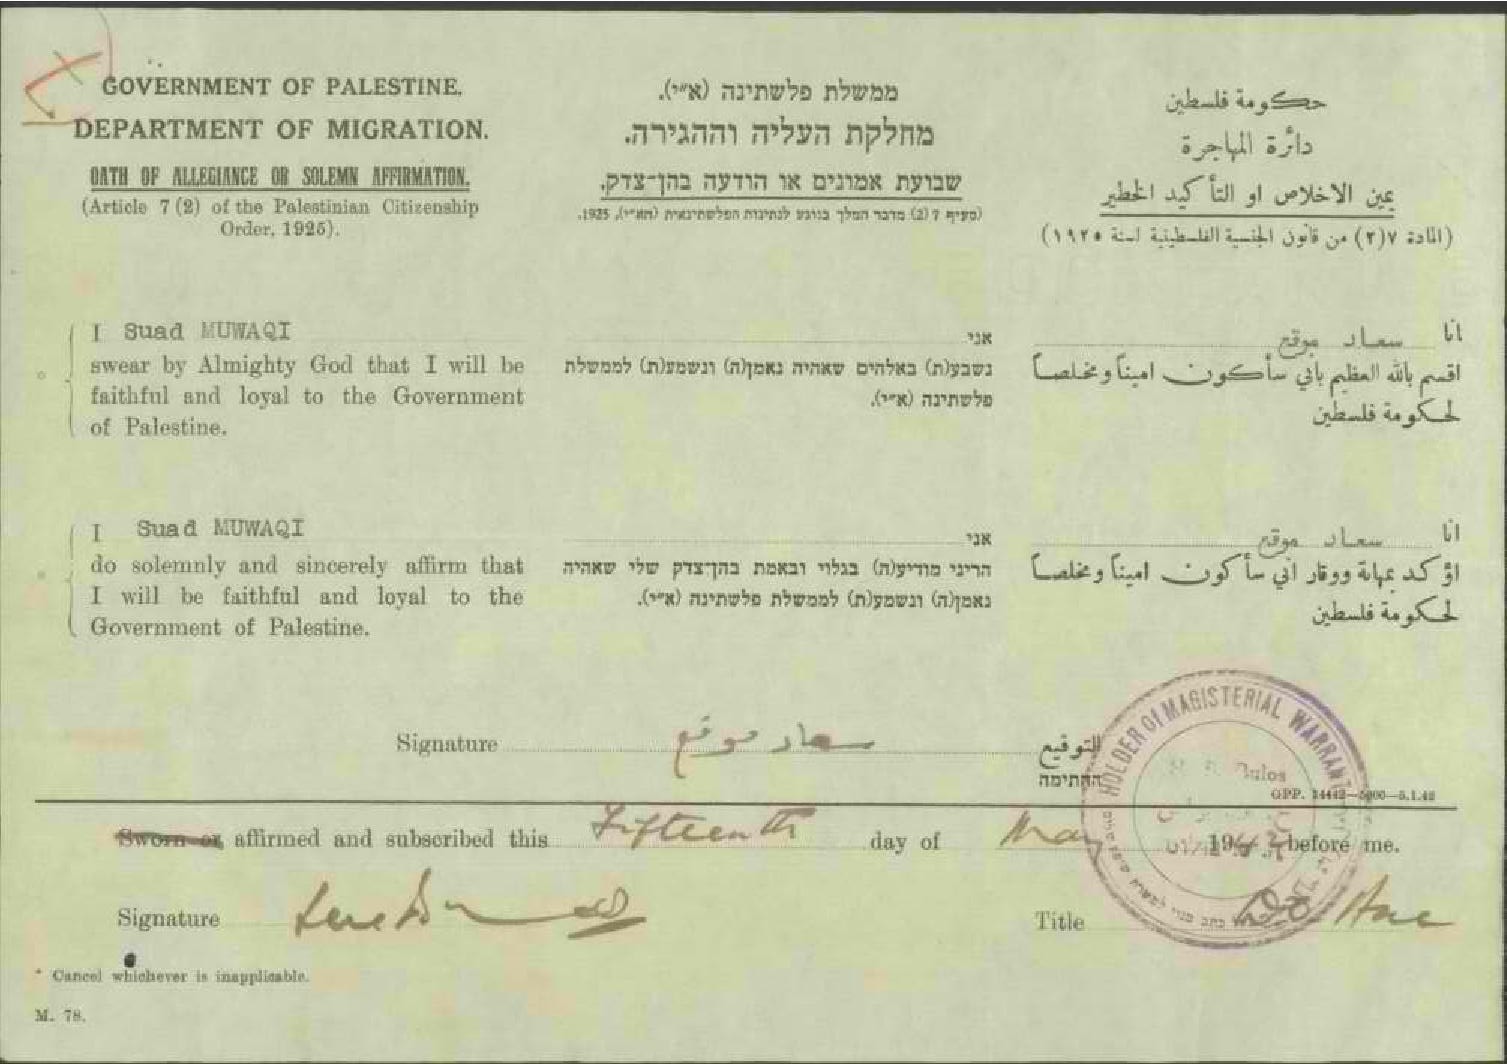 GOVERNMENT OF PALESTINE.
DEPARTMENT OF MIGRATION.
OATH OF ALLEGIANCE OR SOLEMN AFFIRMATION.
(Article 7 (2) of the Palestinian Citizenship
Order, 1925).
ממשלת פלשתינה (א״י).
מחלקת העליה וההגירה.
שבועת אמונים או הודעה בהן־צדק.
(סעיף 7 (2) מדבר המלך בנוגע לנתינות הפלשתינאית (הא״י), 1925.
حكومة فلسطين
دائرة المهاجرة
يمين الاخلاص او التأكيد الخطير
(المادة ٧(٢) من قانون الجنسية الفلسطينية لسنة ١٩٢٥)
I Suad MUWAQI
swear by Almighty God that I will be
faithful and loyal to the Government
of Palestine.
אני
נשבע(ת) באלהים שאהיה נאמן(ה) ונשמע(ת) לממשלת
פלשתינה (א״י).
انا سعاد موقع
اقسم بالله العظيم باني سأكون اميناً ومخلصاً
لحكومة فلسطين
I Suad MUWAQI
do solemnly and sincerely affirm that
I will be faithful and loyal to the
Government of Palestine.
אני
הריני מודיע(ה) בגלוי ובאמת בהן־צדק שלי שאהיה
נאמן(ה) ונשמע(ת) לממשלת פלשתינה (א״י).
انا سعاد موقع
اؤكد بمهابة ووقار اني سأكون اميناً ومخلصاً
لحكومة فلسطين
Signature سعاد موقع التوقيع
החתימה
HOLDER OF MAGISTERIAL WARRANT
Bulos
GPP. 14442—5000—5.1.42
Sworn or affirmed and subscribed this Fifteenth day of May 1942 before me.
Signature
Title
* Cancel whichever is inapplicable.
M. 78.